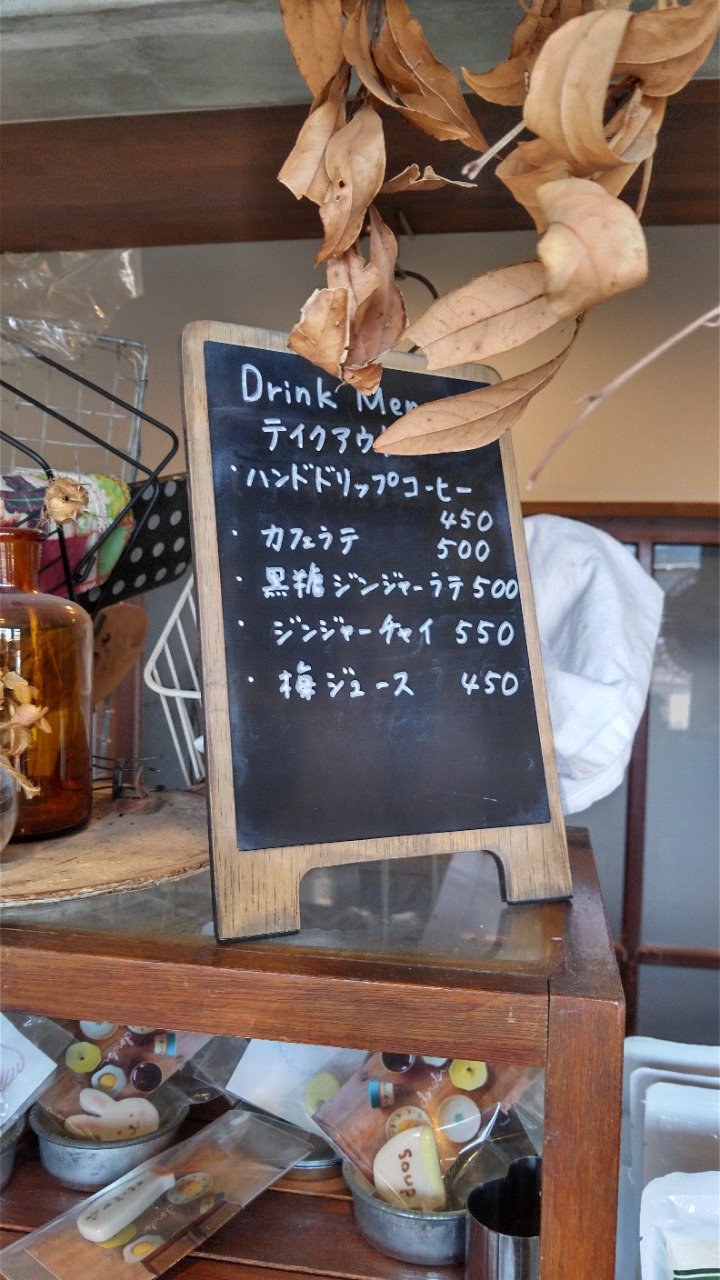 Drink Men
テイクアウ
・ハンドドリップコーヒー
450
・カフェラテ 500
・黒糖ジンジャーラテ 500
・ジンジャーチャイ 550
・梅ジュース 450
soup